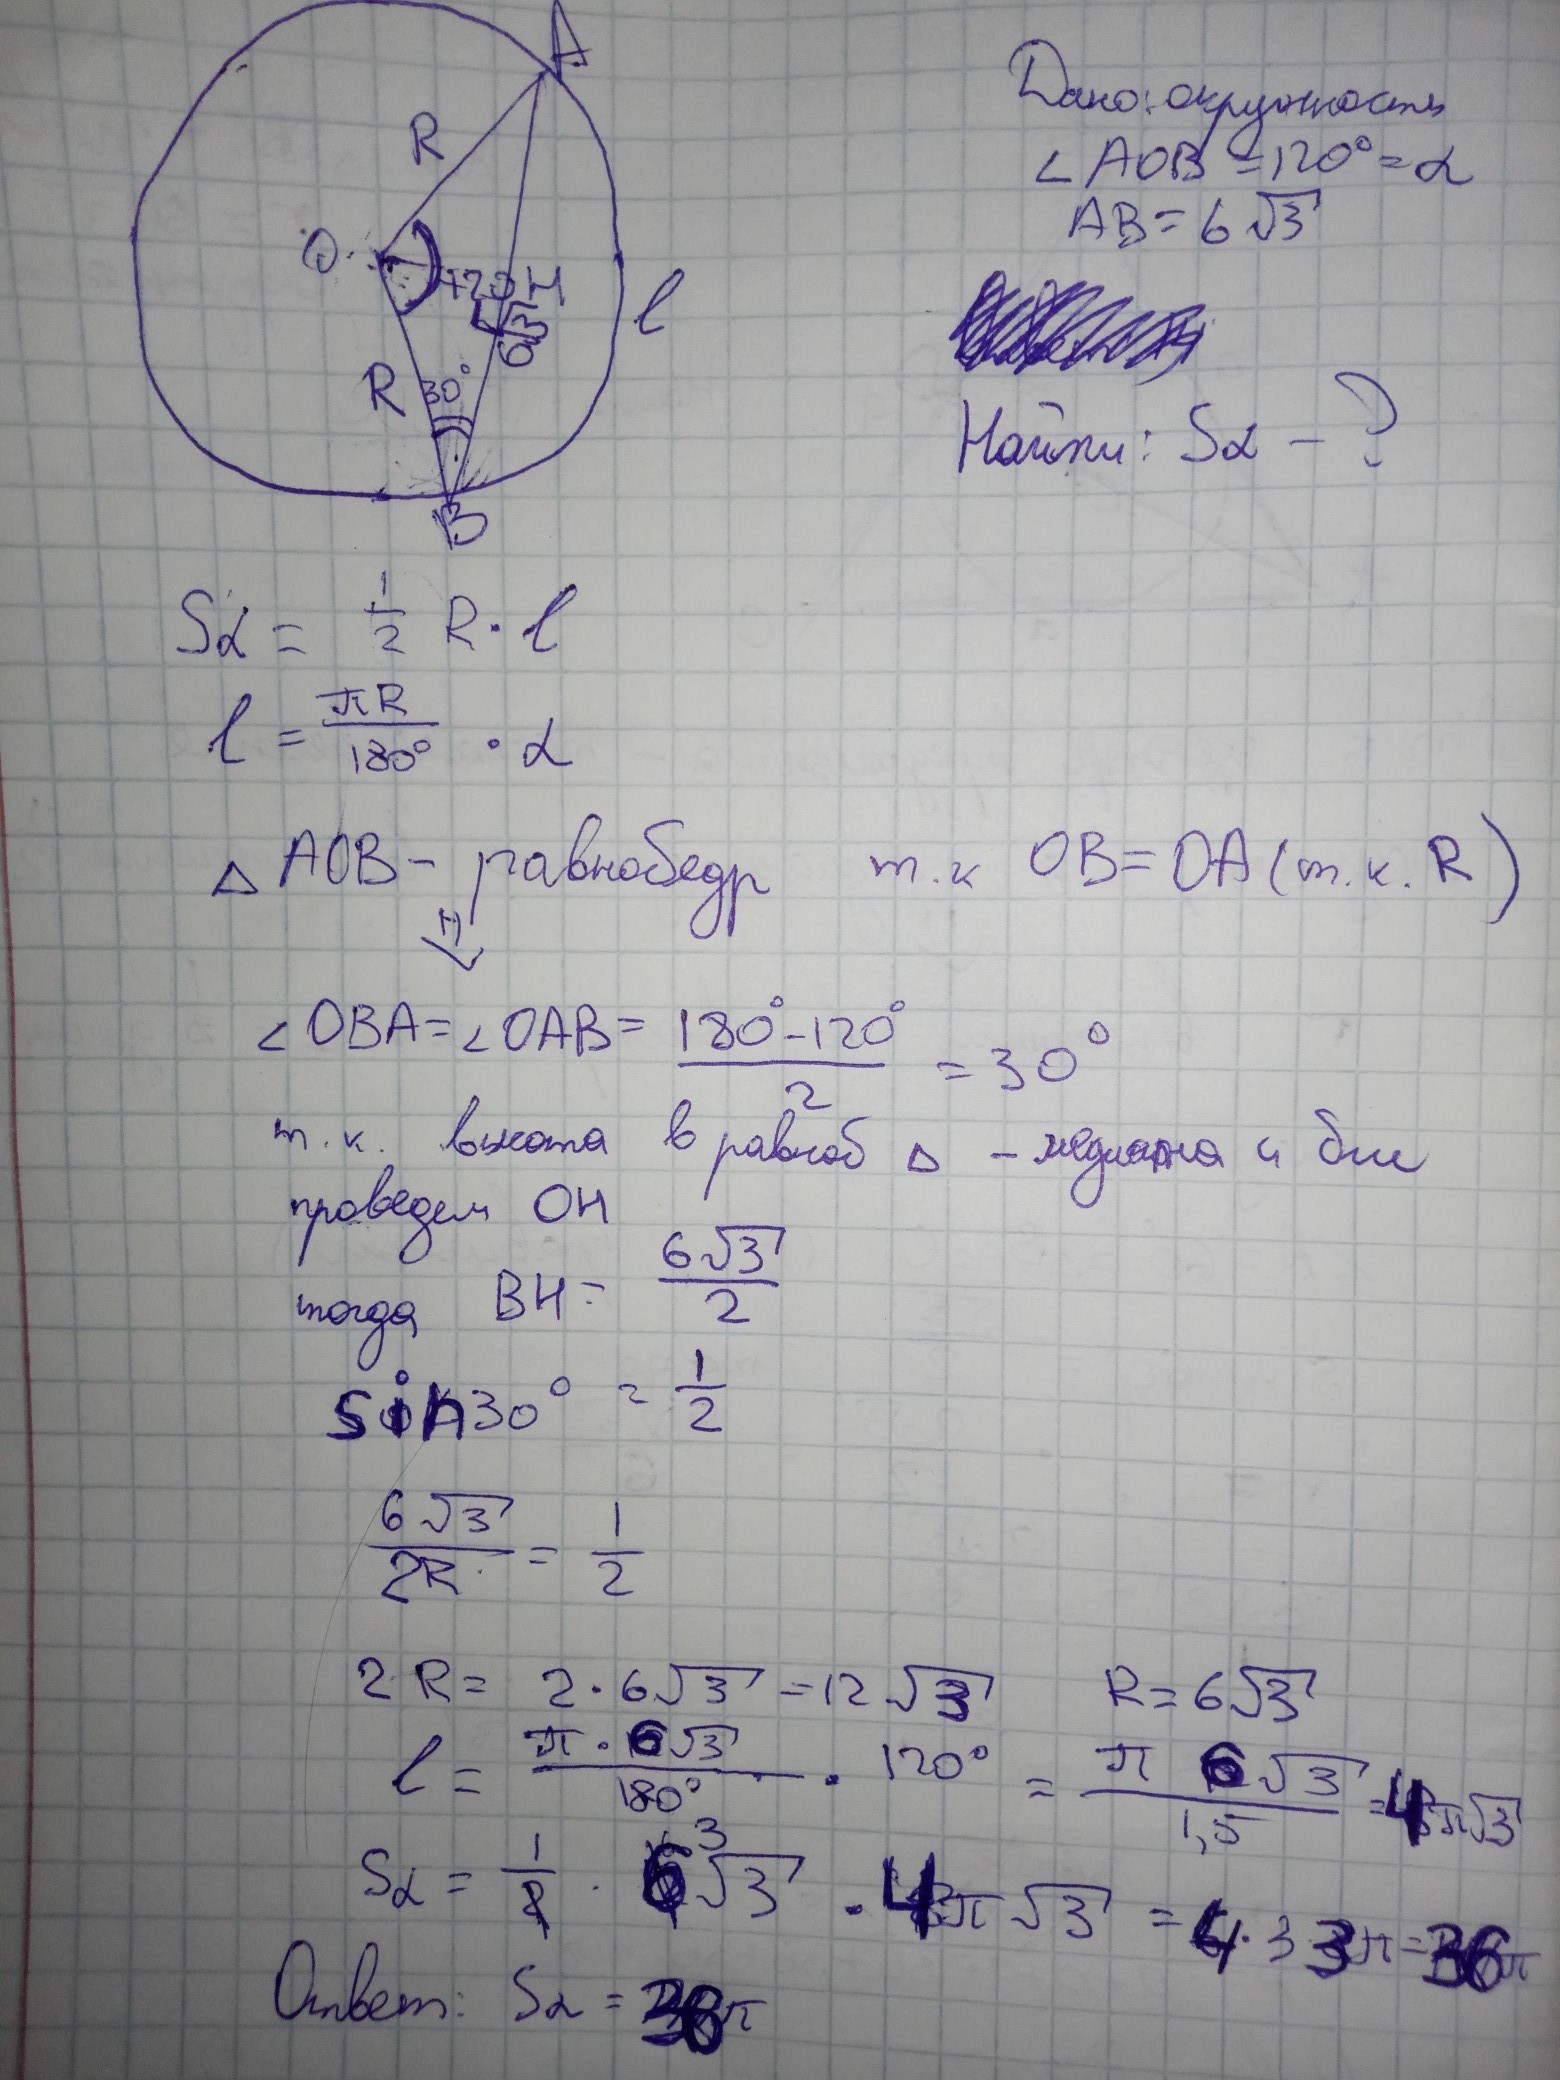 A
R
O
120
H
6√3
l
R
30°
B
Дано: окружность
∠AOB = 120° = α
AB = 6√3
Найти: Sα - ?
Sα = 1/2 R · l
l = πR/180° · α
△ AOB - равнобедр т.к OB = OA (т.к. R)
∠OBA = ∠OAB = 180° - 120°/2 = 30°
т.к. высота в равноб △ - медиана и бис
проведем OH
тогда BH = 6√3/2
sin30° = 1/2
6√3/2R = 1/2
2R = 2 · 6√3 = 12√3 R = 6√3
l = π · 6√3/180° · 120° = π 6√3/1,5 = 4π√3
Sα = 1/2 · 6 3 √3 · 4π√3 = 4 · 3 3π = 36π
Ответ: Sα = 36π